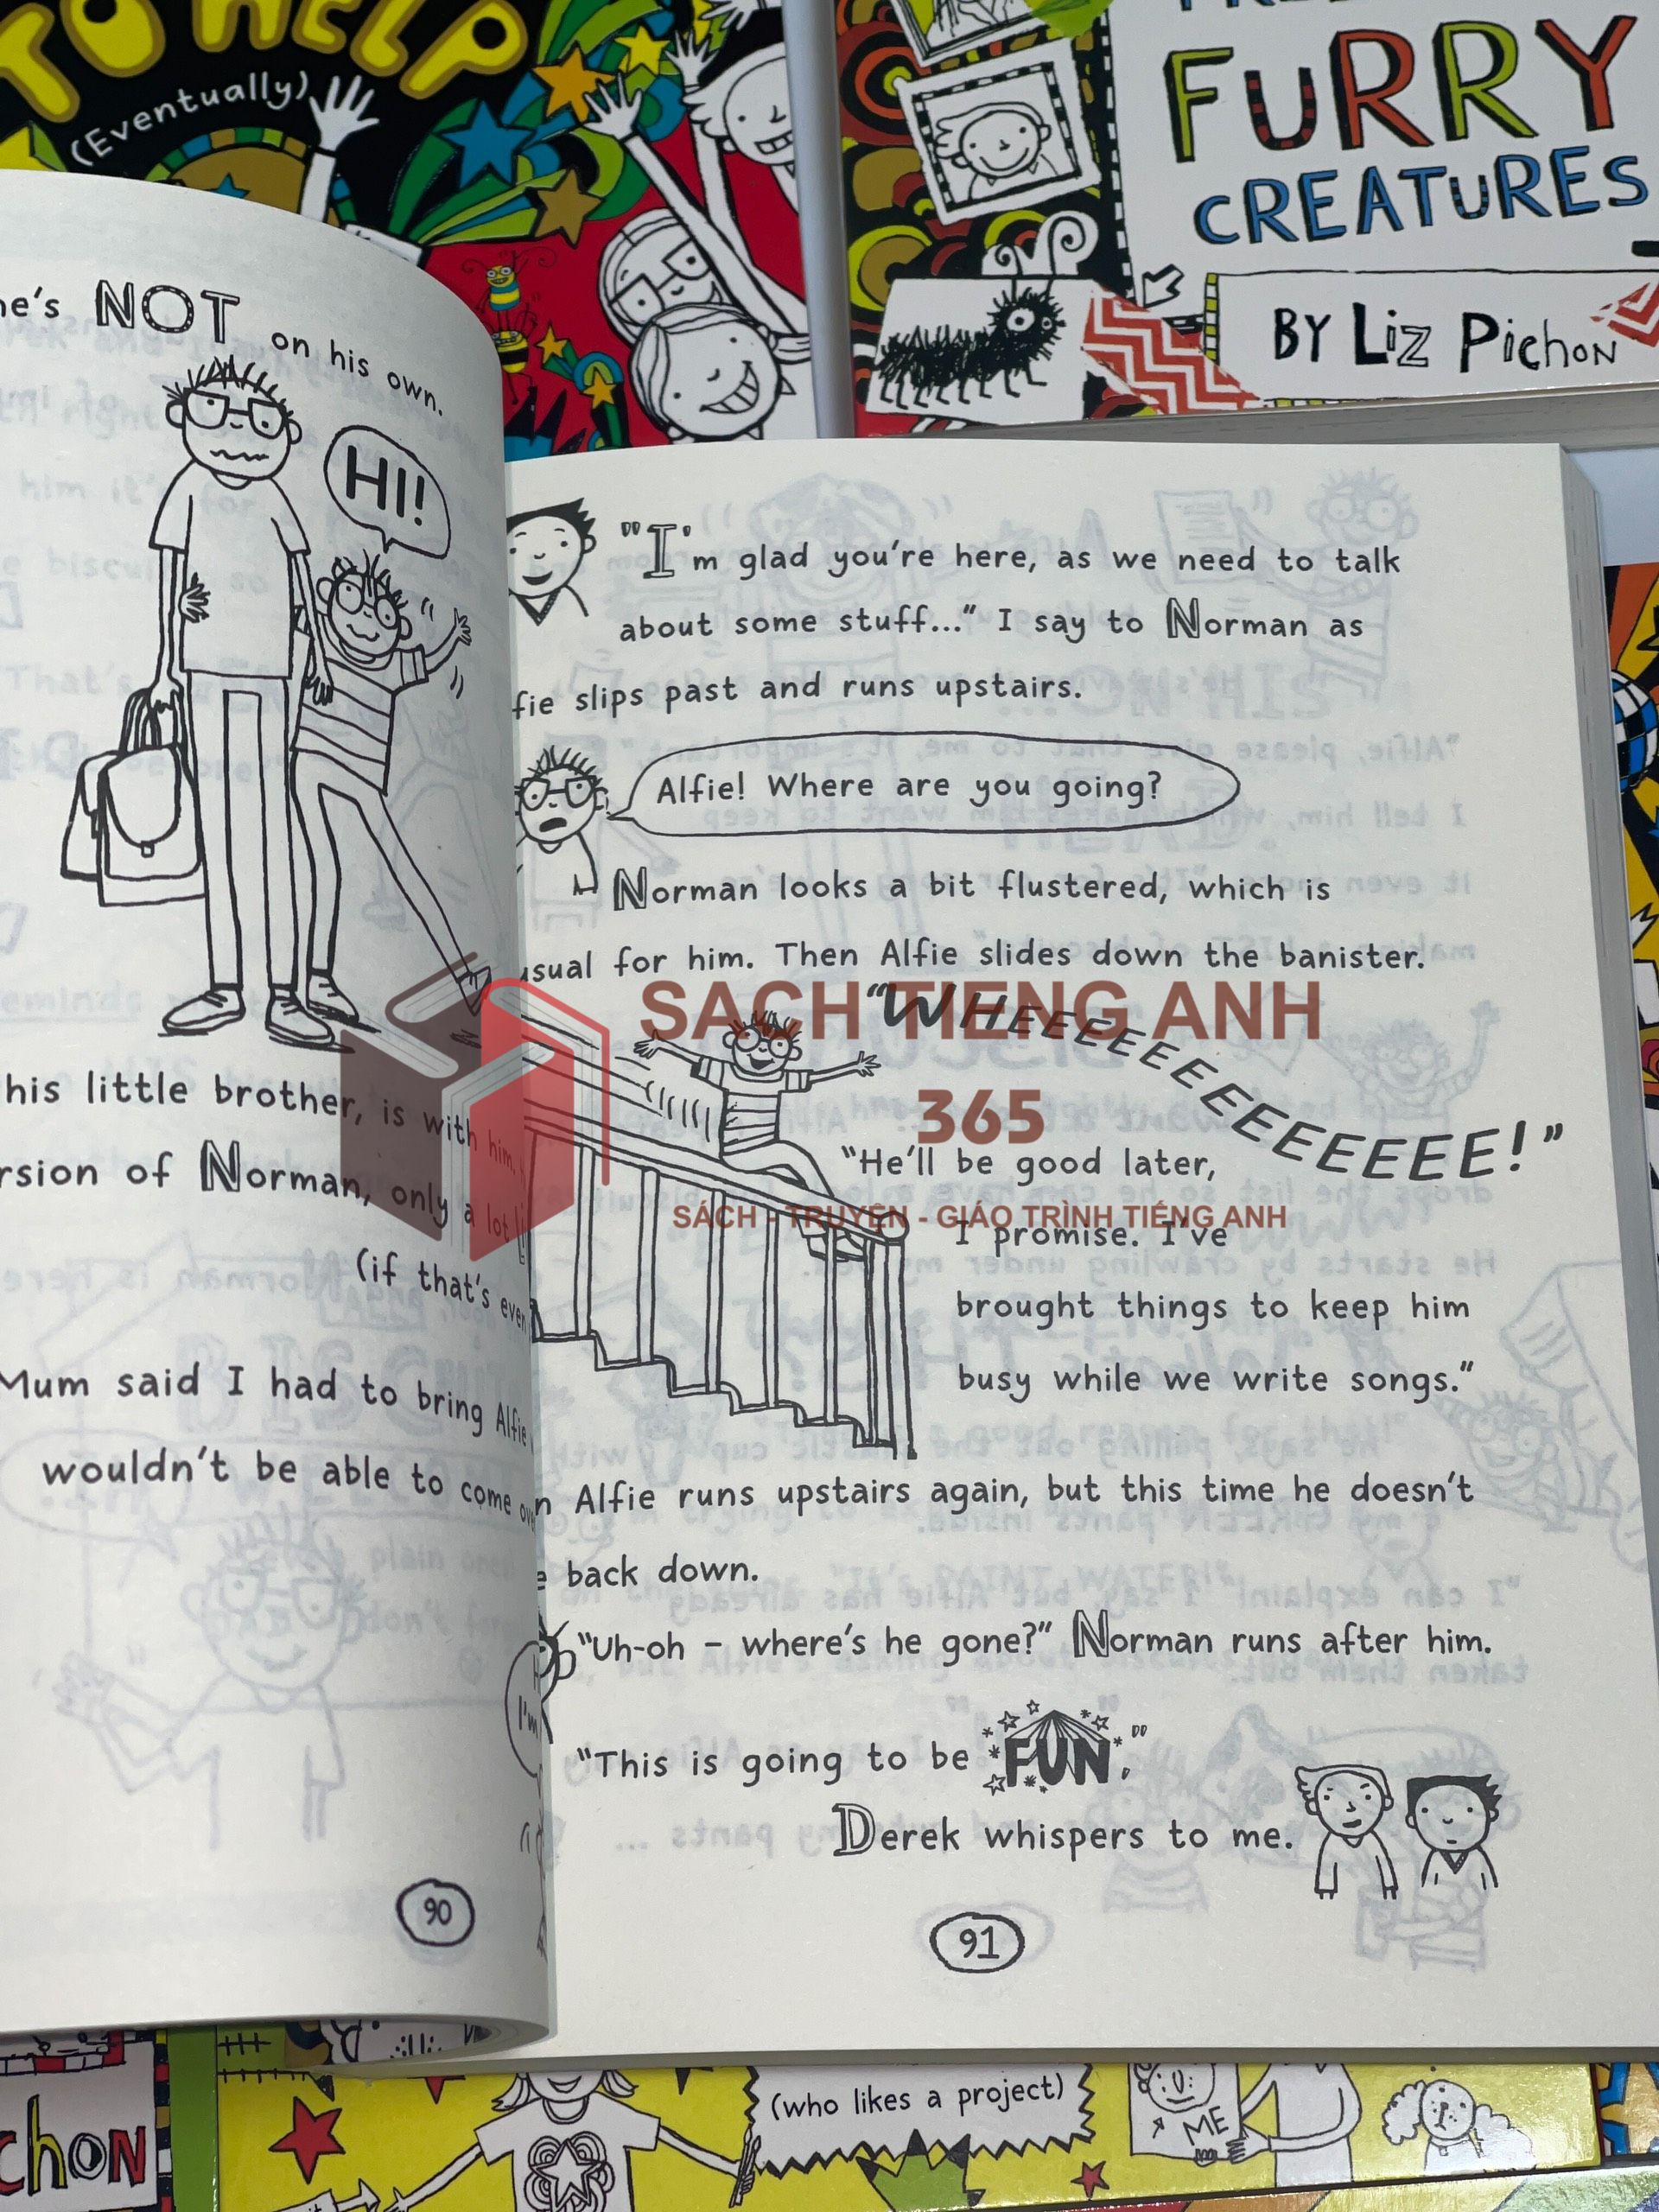 TO HELP
(Eventually)
FURRY
CREATURES
BY Liz Pichon
he's NOT on his own.
HI!
his little brother, is with him.
rsion of Norman, only a lot
(if that's even
Mum said I had to bring Alfie
wouldn't be able to come over
I'm
90
"I'm glad you're here, as we need to talk
about some stuff..." I say to Norman as
fie slips past and runs upstairs.
Alfie! Where are you going?
Norman looks a bit flustered, which is
usual for him. Then Alfie slides down the banister.
"WHEEEEEEEEEEEEEEEE!"
"He'll be good later,
I promise. I've
brought things to keep him
busy while we write songs."
n Alfie runs upstairs again, but this time he doesn't
e back down.
"Uh-oh – where's he gone?" Norman runs after him.
"This is going to be FUN,"
Derek whispers to me.
91
SACH TIENG ANH
365
SÁCH - TRUYỆN - GIÁO TRÌNH TIẾNG ANH
chon
(who likes a project)
ME